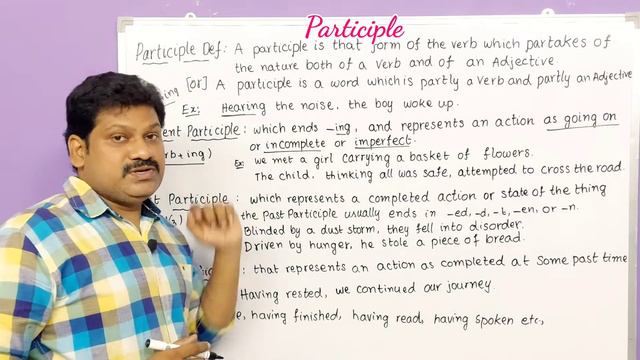 Participle
Participle Def: A participle is that form of the verb which partakes of
the nature both of a verb and of an Adjective.
ing [or] A participle is a word which is partly a verb and partly an Adjective
Ex: Hearing the noise, the boy woke up.
ent Participle: which ends -ing, and represents an action as going on
rb+ing) or incomplete or imperfect.
Ex: we met a girl carrying a basket of flowers.
The child, thinking all was safe, attempted to cross the road.
t Participle: which represents a completed action or state of the thing
the Past Participle usually ends in -ed, -d, -t, -en, or -n.
Blinded by a dust storm, they fell into disorder.
Driven by hunger, he stole a piece of bread.
: that represents an action as completed at some past time
Having rested, we continued our journey.
e, having finished, having read, having spoken etc,